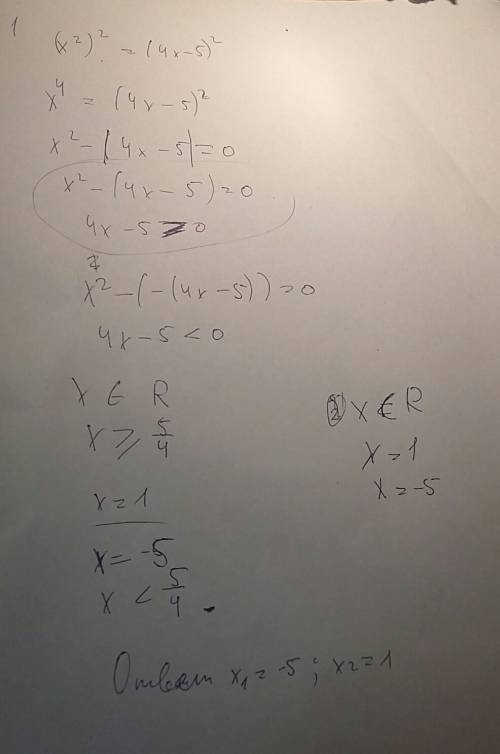 1
(x²)² = (4x-5)²
x⁴ = (4x-5)²
x² - |4x-5| = 0
x² - (4x-5) = 0
4x-5 ≥ 0
x² - (-(4x-5)) = 0
4x-5 < 0
x ∈ R
x ≥ 5/4
x = 1
x = -5
x < 5/4.
② x ∈ R
x = 1
x = -5
Ответ x₁ = -5; x₂ = 1